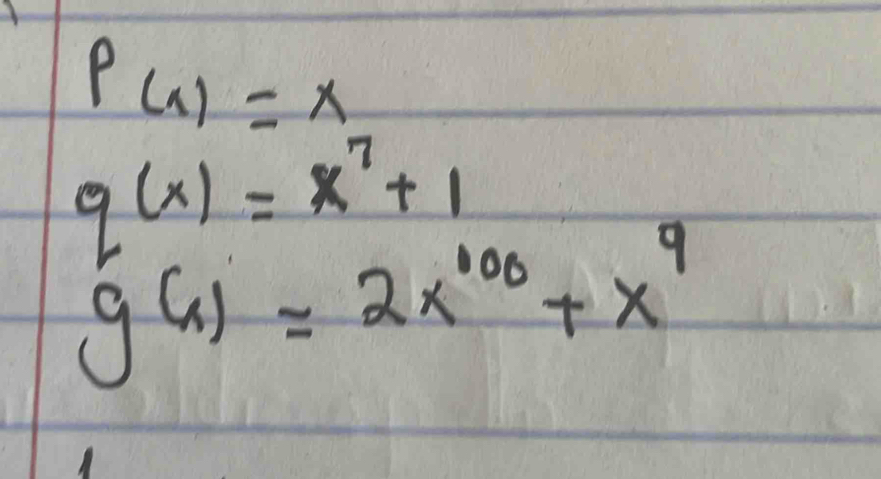 P(x) = x
q(x) = x⁷ + 1
g(x) = 2x¹⁰⁰ + x⁹